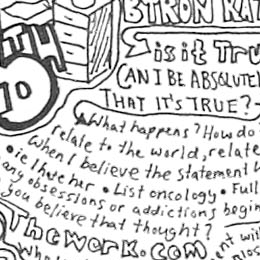 BYRON KAT
is it Tru
CAN I BE ABSOLUTE
THAT IT'S TRUE?
What happens? How do
relate to the world, relate
when I believe the statement
• i.e I hate her • List oncology • Full
any obsessions or addictions begin
you believe that thought?
TheWork.com